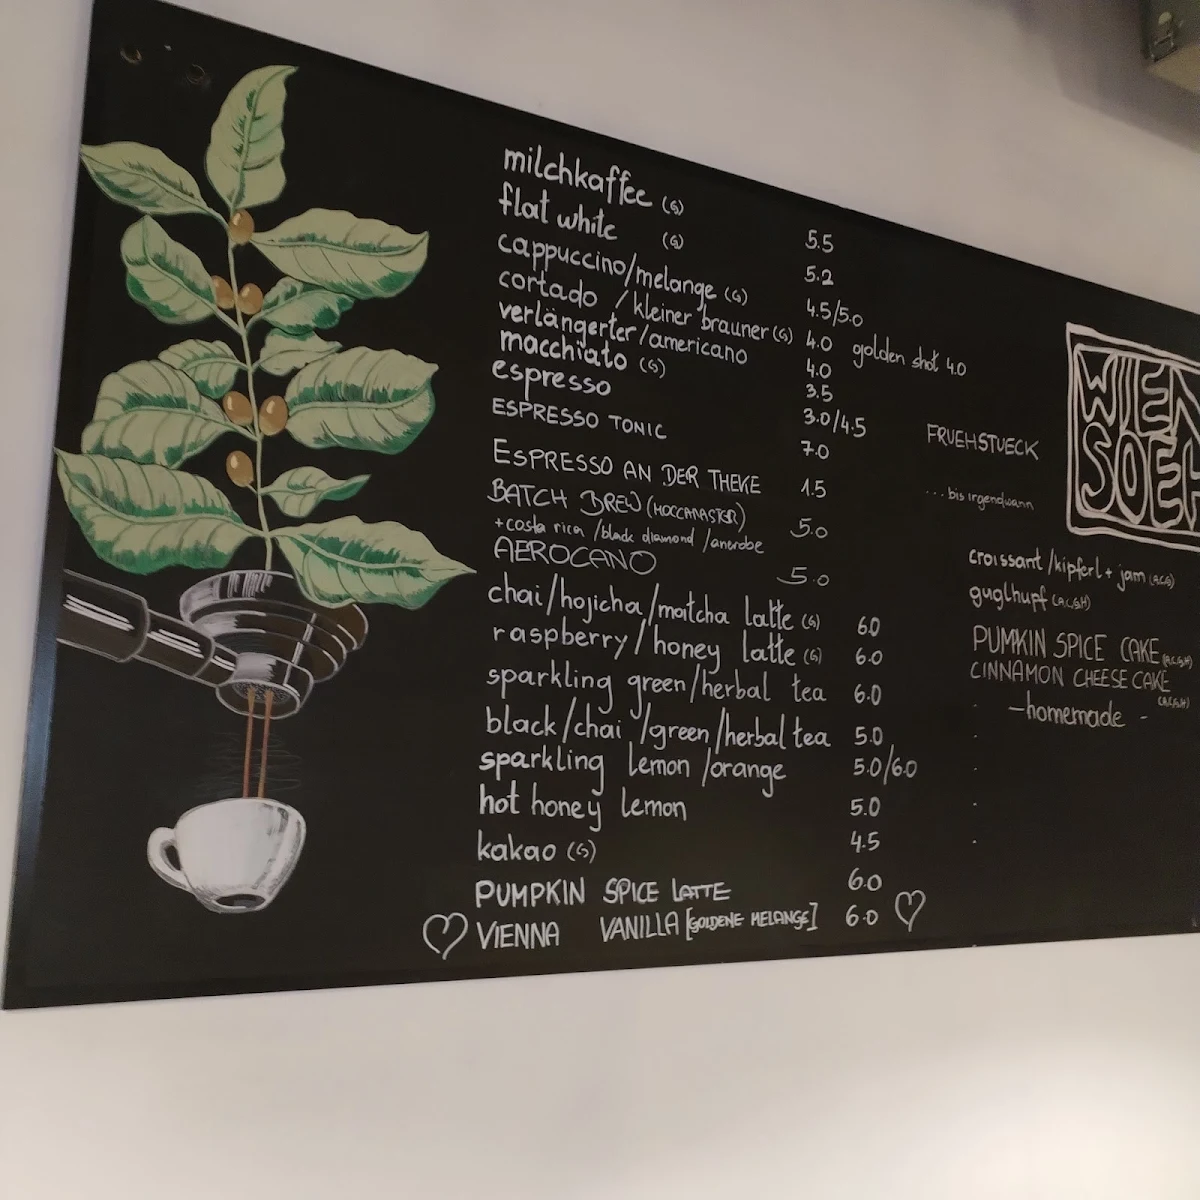 milchkaffee (G) 5.5
flat white (G) 5.2
cappuccino/melange (G) 4.5/5.0
cortado / kleiner brauner (G) 4.0 golden shot 4.0
verlängerter/americano 4.0
macchiato (G) 3.5
espresso 3.0/4.5
ESPRESSO TONIC 7.0
ESPRESSO AN DER THEKE 1.5
BATCH BREW (MOCCAMASTER) 5.0
+costa rica /black diamond /anerobe
AEROCANO 5.0
chai/hojicha/matcha latte (G) 6.0
raspberry/honey latte (G) 6.0
sparkling green/herbal tea 6.0
black/chai /green/herbal tea 5.0
sparkling lemon /orange 5.0/6.0
hot honey lemon 5.0
kakao (G) 4.5
PUMPKIN SPICE LATTE 6.0
VIENNA VANILLA [GOLDENE MELANGE] 6.0
FRUEHSTUECK
...bis irgendwann
croissant/kipferl + jam (A,C,G)
guglhupf (A,C,G,H)
PUMKIN SPICE CAKE (A,C,G,H)
CINNAMON CHEESE CAKE (A,C,G,H)
- homemade -
WIEN
SOEH